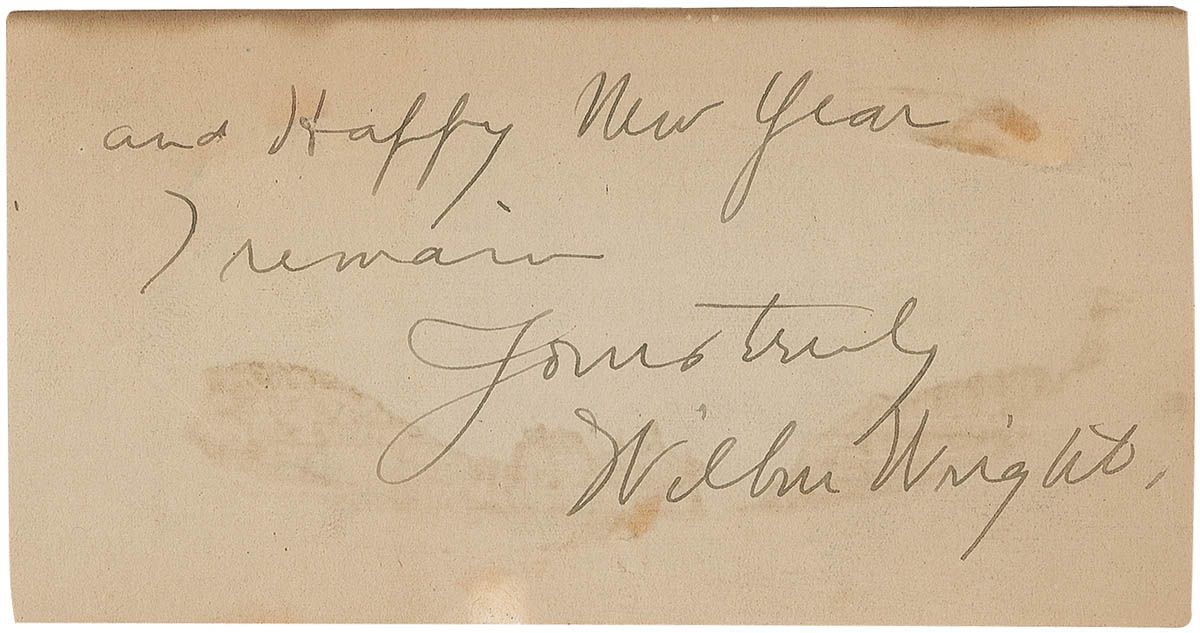 and Happy New Year
I remain
Yours truly
Wilbur Wright.